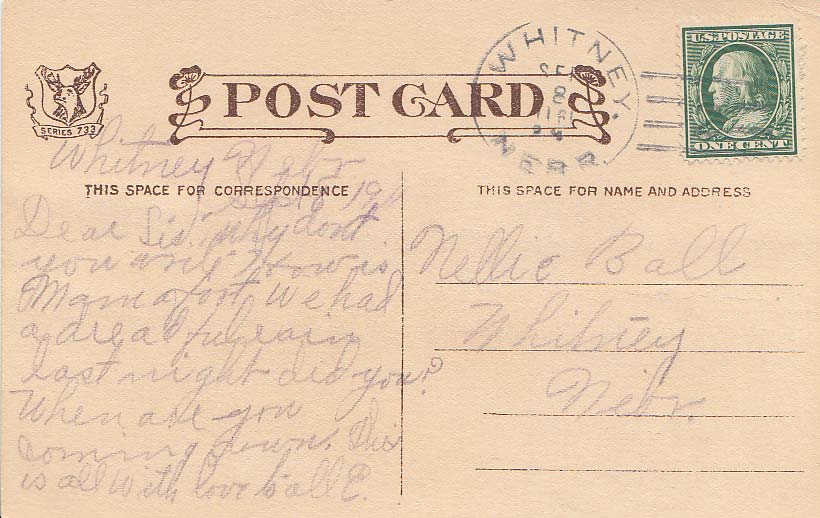 WHITNEY.
SEP
8
NEBR.
U.S. POSTAGE
ONE CENT
POST CARD
SERIES 733
Whitney Nebr.
Sept 8 1911
THIS SPACE FOR CORRESPONDENCE
THIS SPACE FOR NAME AND ADDRESS
Dear Sis. why dont
you How is
Mama foot We had
a dreadful rain
last night did you?
When are you
coming down. This
is all With love to all E.
Nellie Ball
Whitney
Nebr.